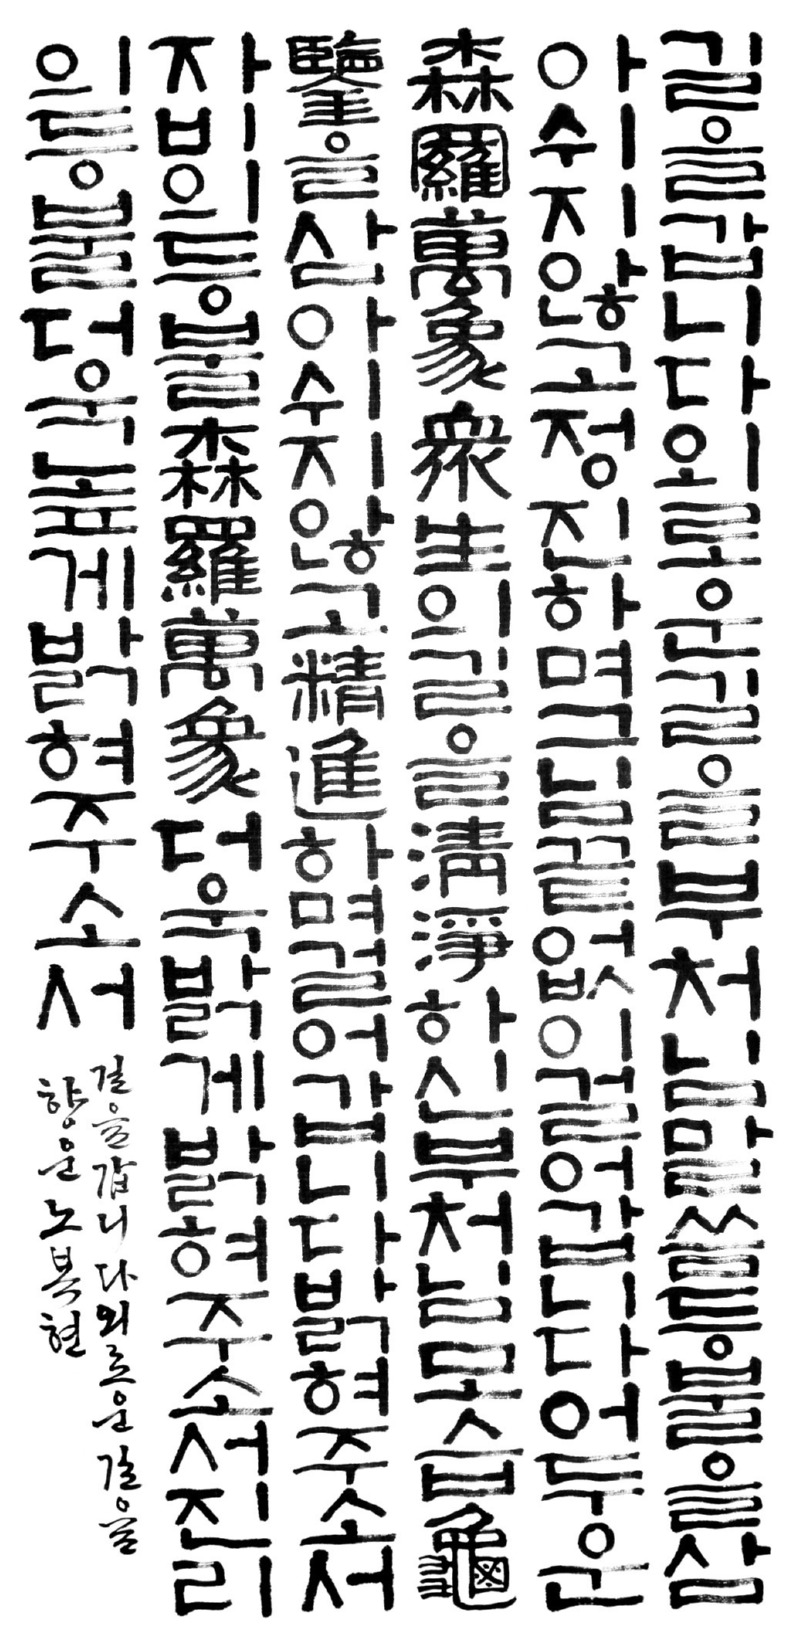 길을갑니다외로운길을부처님말씀등불을삼
아쉬지않고정진하며그님끝없이걸어갑니다어두운
森羅萬象衆生의길을淸淨하신부처님모습龜
鑒을삼아쉬지않고精進하며걸어갑니다밝혀주소서
자비의등불森羅萬象더욱밝게밝혀주소서진리
의등불더욱높게밝혀주소서
길을갑니다외로운길을
향운노복현